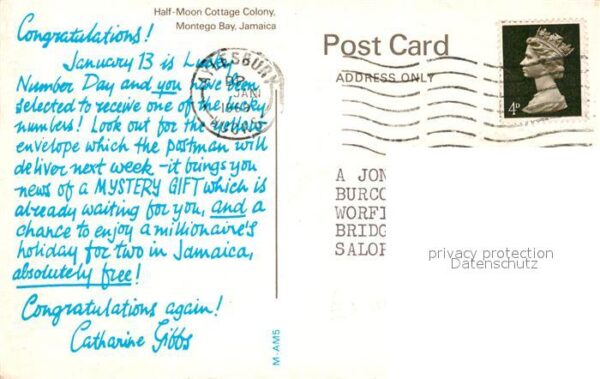 Half-Moon Cottage Colony,
Montego Bay, Jamaica
Congratulations!
January 13 is Lucky
Number Day and you have been
selected to receive one of the lucky
numbers! Look out for the yellow
envelope which the postman will
deliver next week - it brings you
news of a MYSTERY GIFT which is
already waiting for you, and a
chance to enjoy a millionaire's
holiday for two in Jamaica,
absolutely free!
Congratulations again!
Catharine Gibbs
M-AM5
AYLESBURY
JAN
BUCKS
Post Card
ADDRESS ONLY
4D
A JON
BURCO
WORFI
BRIDG
SALOP
privacy protection
Datenschutz